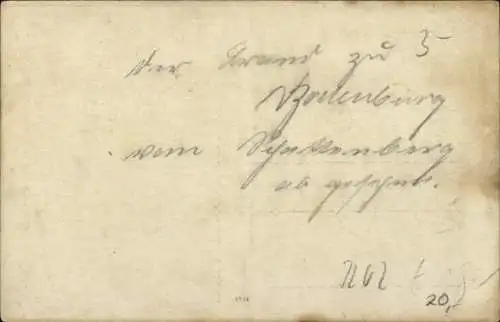 der Brand zu 5
Bodenburg
vom Schattenberg
ab gesehen.
20,